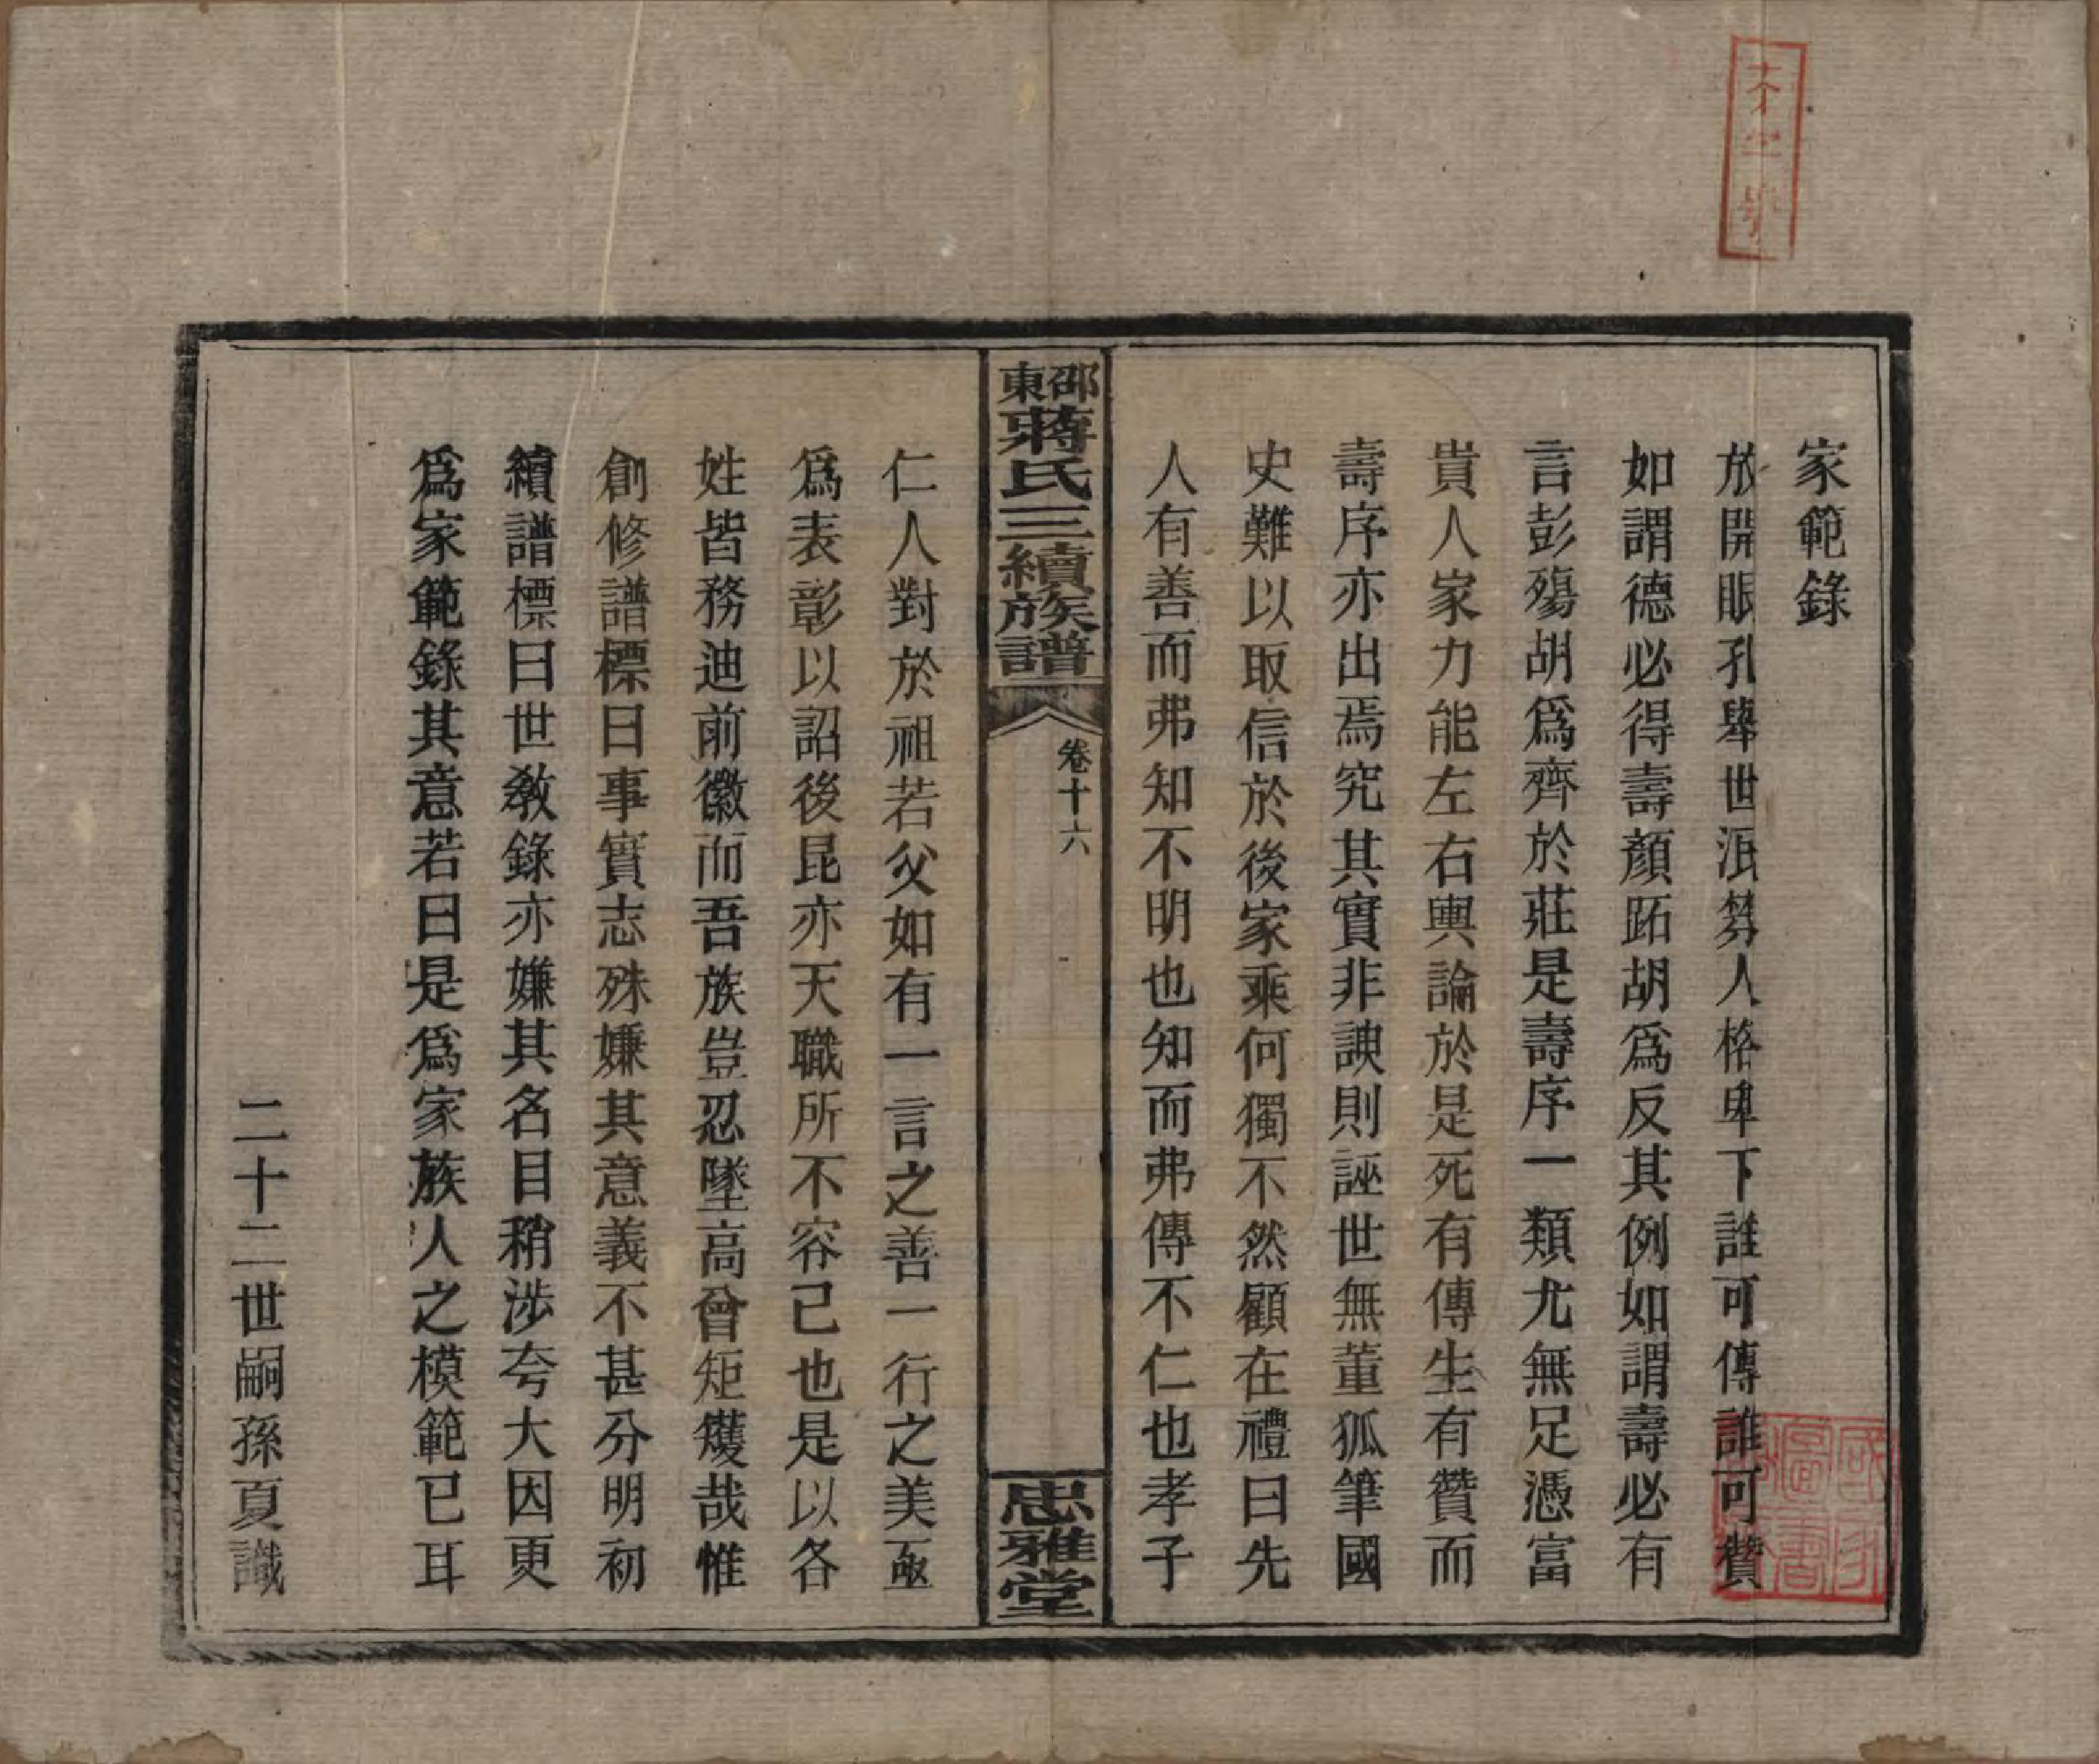 家範錄
放開眼孔舉世泯棼人格卑下誰可傳誰可贊
如謂德必得壽顏跖胡爲反其例如謂壽必有
言彭殤胡爲齊於莊是壽序一類尤無足憑富
貴人家力能左右輿論於是死有傳生有贊而
壽序亦出焉究其實非諛則誣世無董狐筆國
史難以取信於後家乘何獨不然顧在禮曰先
人有善而弗知不明也知而弗傳不仁也孝子
邵東蔣氏三續族譜
卷十六
忠雅堂
仁人對於祖若父如有一言之善一行之美亟
爲表彰以詔後昆亦天職所不容已也是以各
姓皆務迪前徽而吾族豈忍墜高曾矩矱哉惟
創修譜標曰事實志殊嫌其意義不甚分明初
續譜標曰世教錄亦嫌其名目稍涉夸大因更
爲家範錄其意若曰是爲家族人之模範已耳
二十二世嗣孫夏識